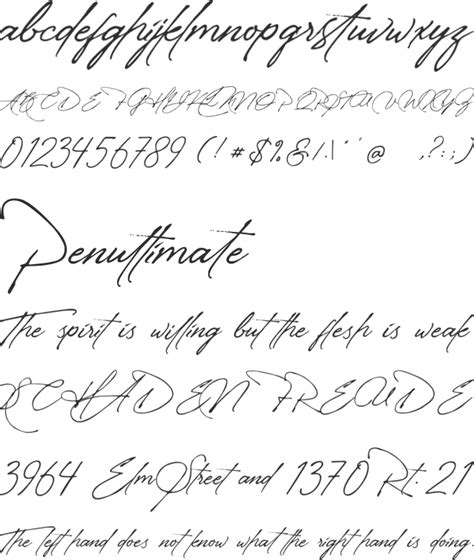 abcdefghijklmnopqrstuvwxyz
ABCDEFGHIJKLMNOPQRSTUVWXYZ
0123456789 (!#$%&/.\`|´ @ ,?:;)
Penultimate
The spirit is willing but the flesh is weak
SCHADENFREUDE
3964 Elm Street and 1370 Rt. 21
The left hand does not know what the right hand is doing